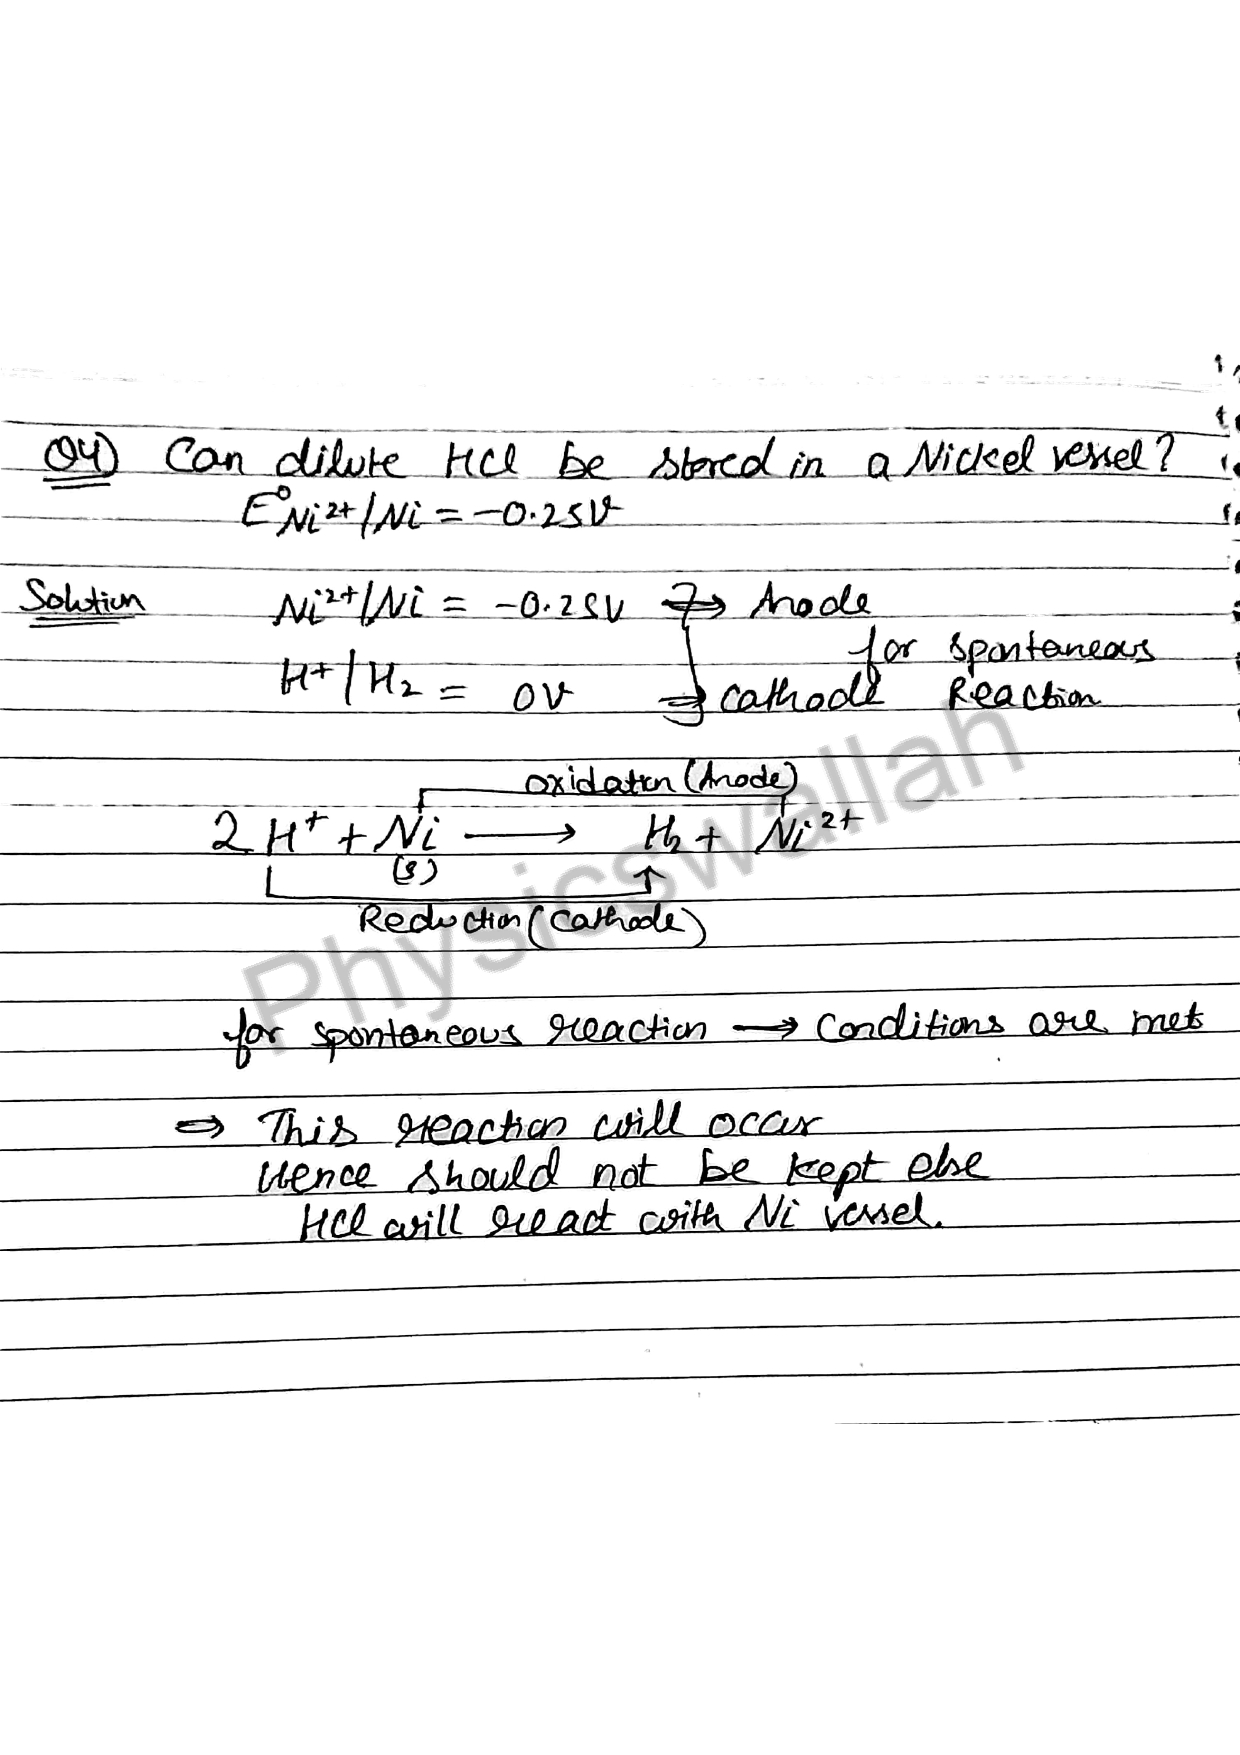 Q4) Can dilute HCl be stored in a Nickel vessel?
E°Ni²⁺/Ni = -0.25V
Solution Ni²⁺/Ni = -0.25V → Anode
for spontaneous
H⁺/H₂ = 0V → Cathode Reaction
oxidation (Anode)
2H⁺ + Ni → H₂ + Ni²⁺
(s)
Reduction (Cathode)
Physicswallah
for spontaneous reaction → Conditions are met
⇒ This reaction will occur
Hence should not be kept else
HCl will react with Ni vessel.